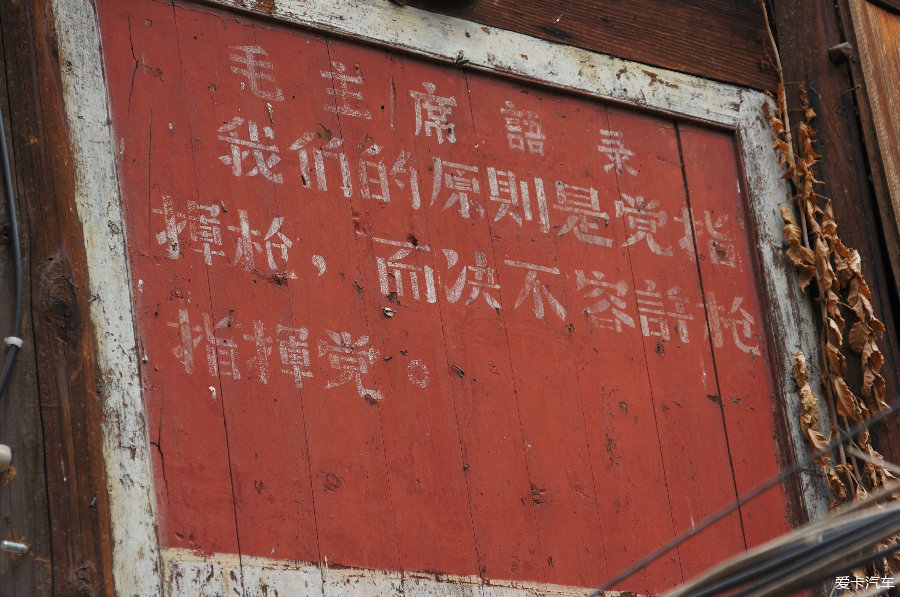 毛主席語录
我们的原则是党指
揮枪，而决不容許枪
指揮党。
爱卡汽车